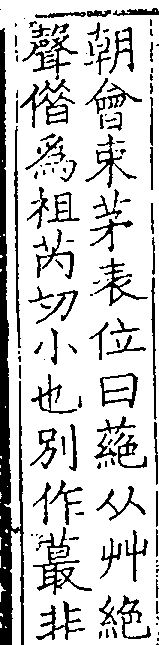 朝會束茅表位曰蕝从艸絶
聲僭爲祖芮切小也別作蕞非